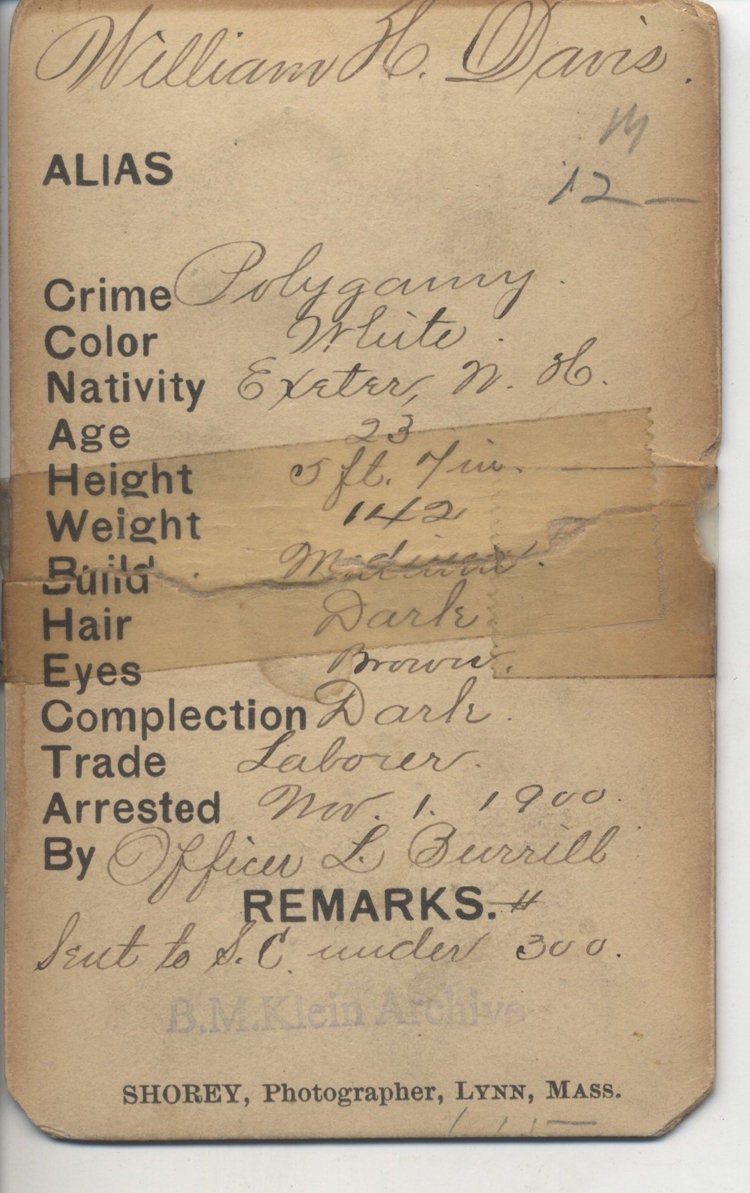 William H. Davis.
12 —
ALIAS
Crime Polygamy.
Color White.
Nativity Exeter, N. H.
Age 23
Height 5 ft. 7 in.
Weight 142
Build Medium.
Hair Dark
Eyes Brown.
Complection Dark.
Trade Laborer.
Arrested Nov. 1. 1900.
By Officer L. Burrill
REMARKS.
Sent to S. C. under 300.
B.M.Klein Archive
SHOREY, Photographer, LYNN, MASS.